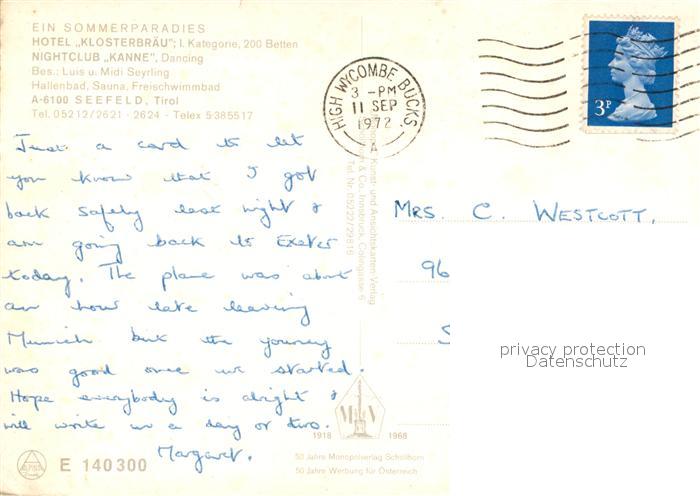 EIN SOMMERPARADIES
HOTEL „KLOSTERBRÄU"; I. Kategorie, 200 Betten
NIGHTCLUB „KANNE", Dancing
Bes.: Luis u. Midi Seyrling
Hallenbad, Sauna, Freischwimmbad
A-6100 SEEFELD, Tirol
Tel. 05212/2621 - 2624 - Telex 5-385517
HIGH WYCOMBE BUCKS.
3 - PM
11 SEP
1972
A
3P
Just a card to let
you know that I got
back safely last night &
am going back to Exeter
today. The plane was about
an hour late leaving
Munich but the journey
was good once we started.
Hope everybody is alright &
will write in a day or two.
Margaret.
MRS. C. WESTCOTT,
96
S
privacy protection
Datenschutz
Kunst- und Ansichtskarten Verlag
& Co. Innsbruck, Colingasse 6
Tel. Nr. 05222/29816
M V
1918 1968
50 Jahre Monopolverlag Schöllhorn
50 Jahre Werbung für Österreich
E 140300